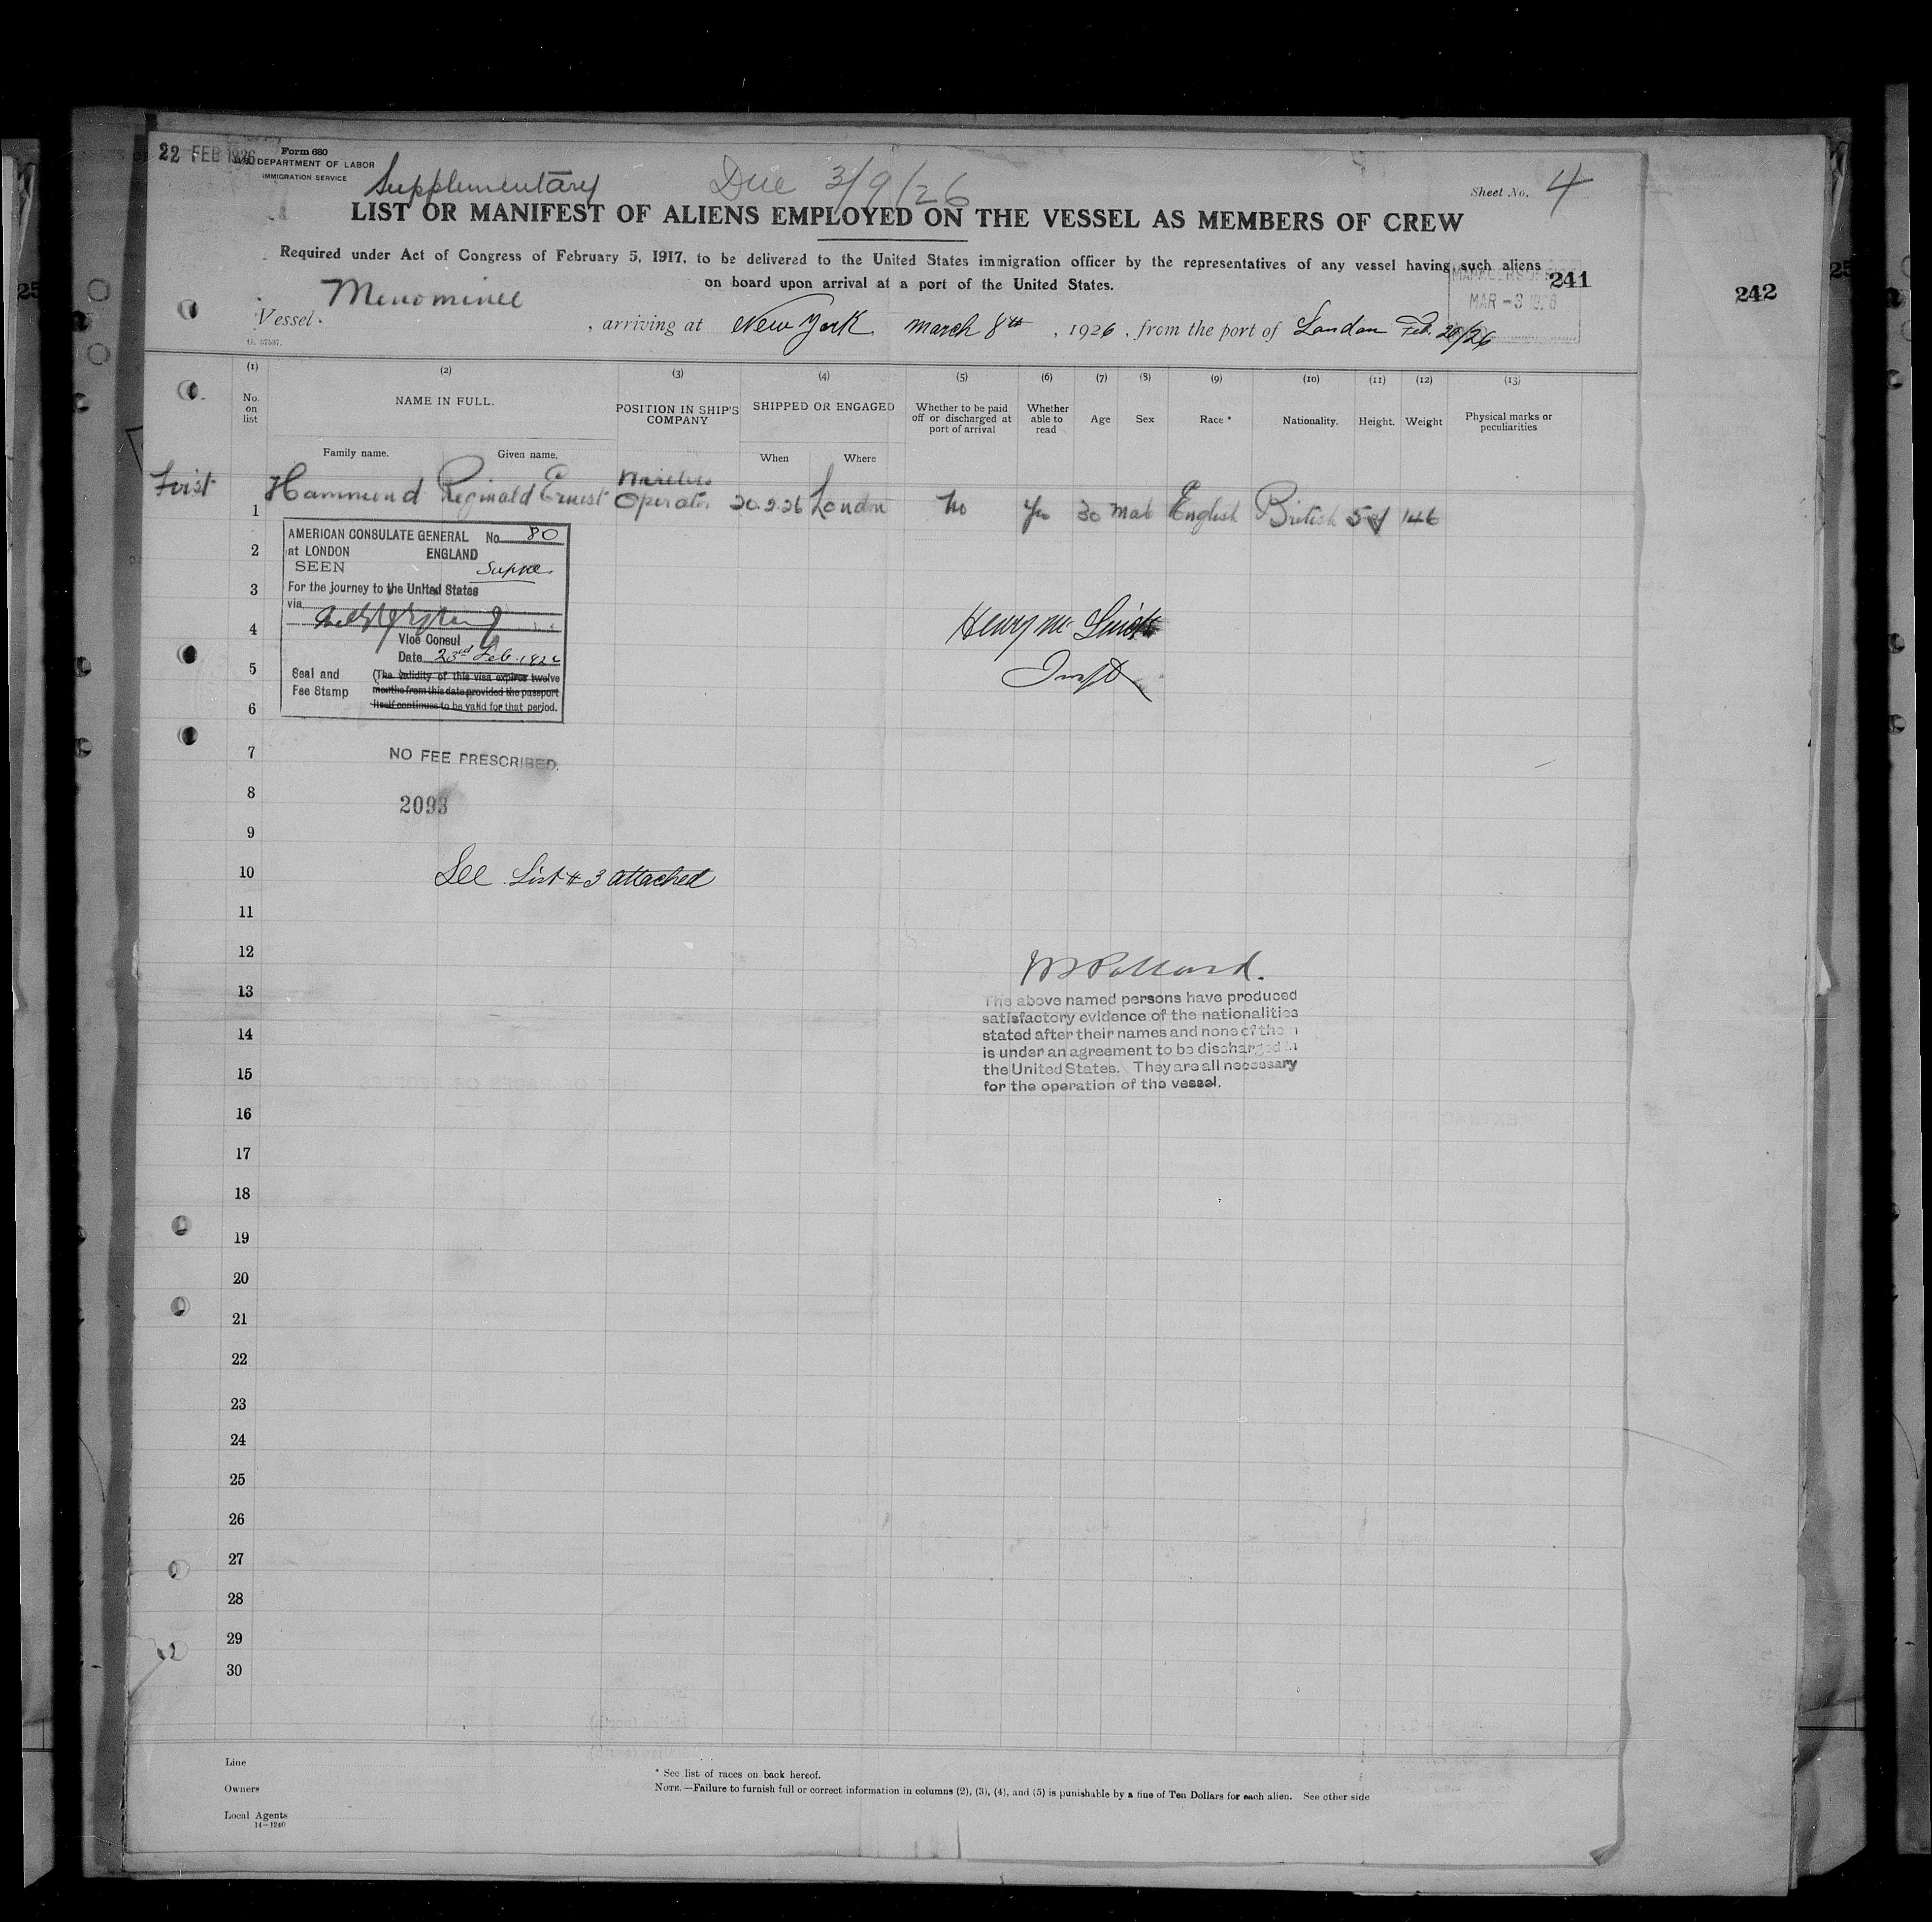 22 FEB 1926
Form 680
U.S. DEPARTMENT OF LABOR
IMMIGRATION SERVICE
Supplementary
Due 3/9/26
Sheet No. 4
LIST OR MANIFEST OF ALIENS EMPLOYED ON THE VESSEL AS MEMBERS OF CREW
Required under Act of Congress of February 5, 1917, to be delivered to the United States immigration officer by the representatives of any vessel having such aliens
on board upon arrival at a port of the United States.
241
242
MAR -3 1926
Vessel Menominee, arriving at New York March 8th, 1926, from the port of London Feb. 26/26
(1) (2) (3) (4) (5) (6) (7) (8) (9) (10) (11) (12) (13)
No. on list
NAME IN FULL.
Family name. Given name.
POSITION IN SHIP'S COMPANY
SHIPPED OR ENGAGED
When Where
Whether to be paid off or discharged at port of arrival
Whether able to read
Age
Sex
Race *
Nationality.
Height.
Weight
Physical marks or peculiarities
First
1 Hammond Reginald Ernest Wireless Operator 20.2.26 London No Yes 30 Male English British 146
2
3
4
5
6
7
8
9
10
11
12
13
14
15
16
17
18
19
20
21
22
23
24
25
26
27
28
29
30
AMERICAN CONSULATE GENERAL No. 80
at LONDON ENGLAND
SEEN
For the journey to the United States
via
Vice Consul
Date 23rd Feb. 1926
Seal and Fee Stamp
(The validity of this visa expires twelve
months from this date provided the passport
itself continues to be valid for that period.
NO FEE PRESCRIBED.
2093
Henry Mc
Inspt
See List # 3 attached
Pollard.
The above named persons have produced
satisfactory evidence of the nationalities
stated after their names and none of them
is under an agreement to be discharged in
the United States. They are all necessary
for the operation of the vessel.
Line
Owners
Local Agents
14—1240
* See list of races on back hereof.
NOTE.—Failure to furnish full or correct information in columns (2), (3), (4), and (5) is punishable by a fine of Ten Dollars for each alien. See other side